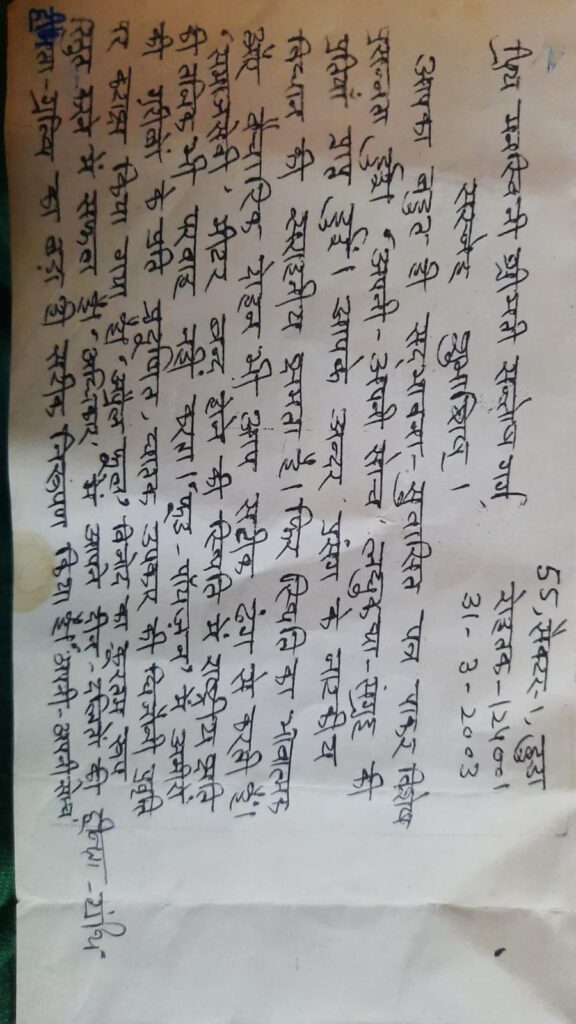 55, सैक्टर-1, हुडा
रोहतक-124001
31-3-2003
प्रिय मनस्विनी श्रीमती सन्तोष गर्ग
सस्नेह शुभाशिष् ।
आपका बहुत ही सद्भावना-सुवासित पत्र पाकर विशेष
प्रसन्नता हुई। 'अपनी-अपनी सोच' लघुकथा-संग्रह की
प्रतियाँ प्राप्त हुईं। आपके अन्दर प्रसंग के नाटकीय
विधान की सराहनीय क्षमता है। फिर स्थिति का भावात्मक
और वैचारिक दोहन भी आप सटीक ढंग से करती हैं।
'समाजसेवी' मीटर बन्द होने की स्थिति में राष्ट्रीय क्षति
की तनिक भी परवाह नहीं करता। 'फूड-पॉयज़न' में अमीरों
की गरीबों के प्रति प्रदूषित, घातक उपकार की घिनौनी वृत्ति
पर कटाक्ष किया गया है। 'अप्रैल फूल' विनोद का क्रूरतम रूप
प्रस्तुत करने में सफल है। 'अधिकार' में आपने दीन-दलितों की
हीनता-ग्रन्थि का बड़ा ही सटीक निरूपण किया है। 'अपनी-अपनी सोच'